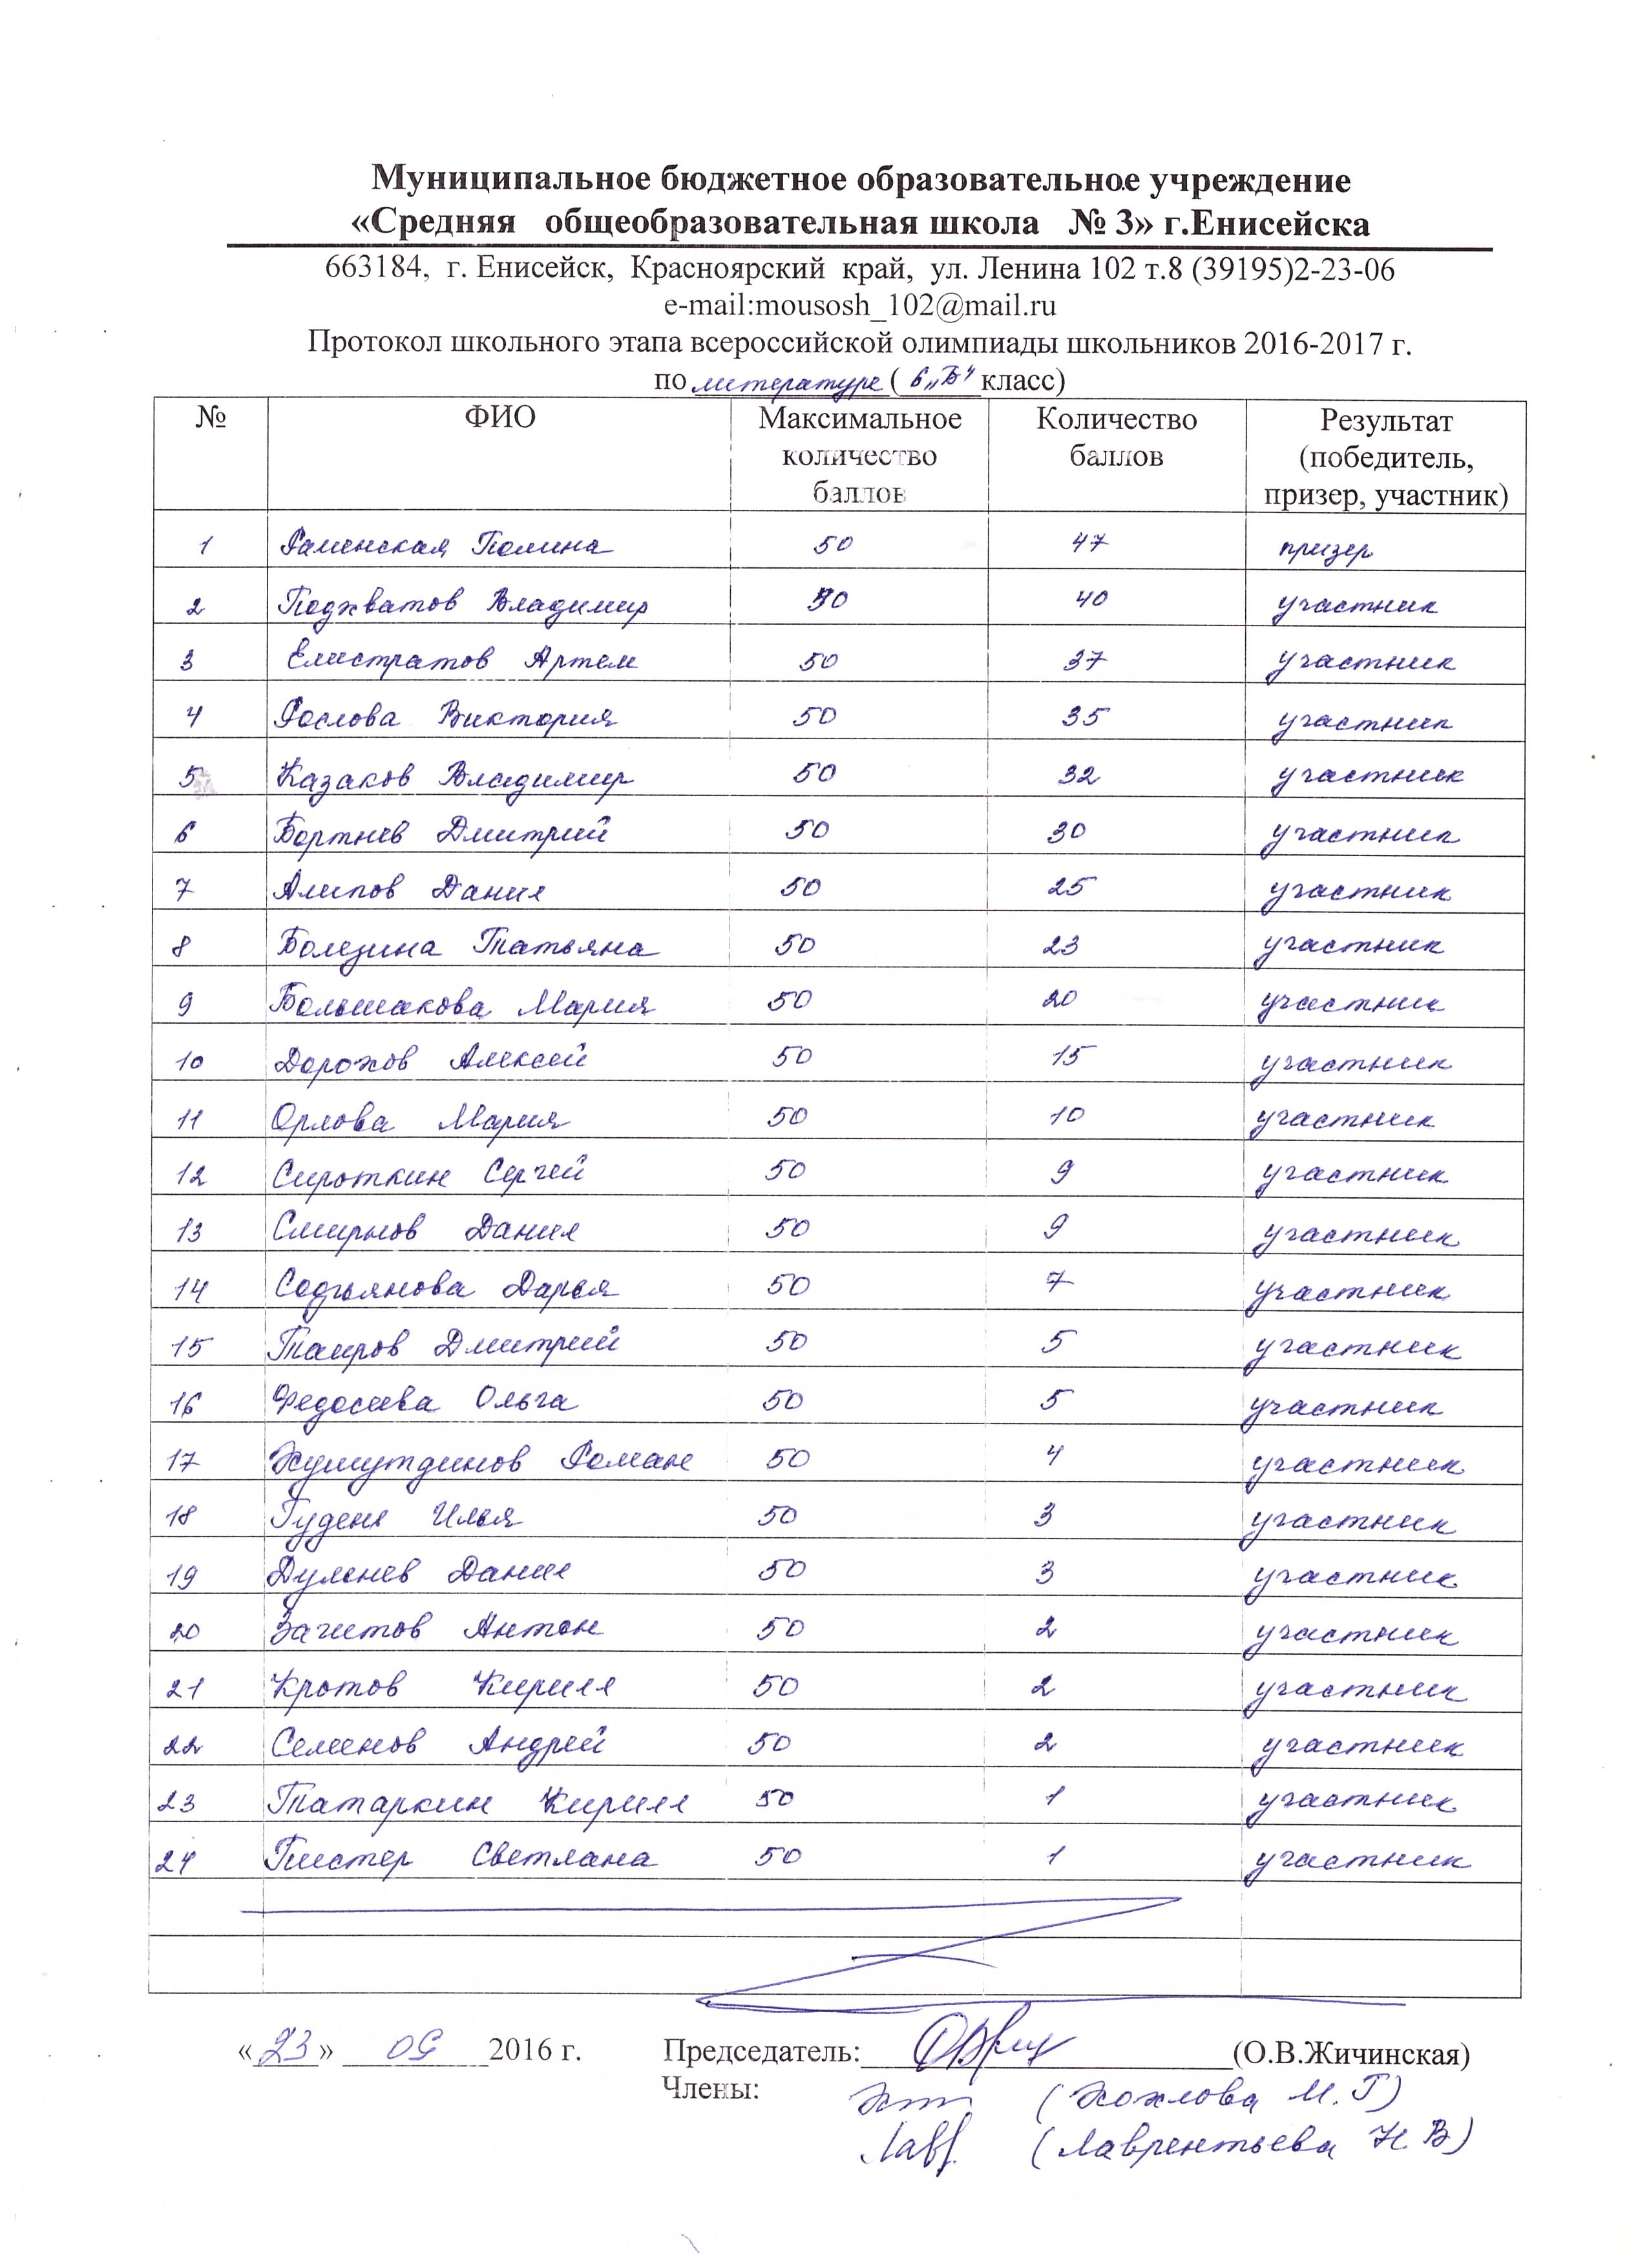 Муниципальное бюджетное образовательное учреждение
«Средняя общеобразовательная школа № 3» г.Енисейска
663184, г. Енисейск, Красноярский край, ул. Ленина 102 т.8 (39195)2-23-06
e-mail:mousosh_102@mail.ru
Протокол школьного этапа всероссийской олимпиады школьников 2016-2017 г.
по литературе ( 6 „Б" класс)
№ ФИО Максимальное количество баллов Количество баллов Результат (победитель, призер, участник)
1 Раменская Полина 50 47 призер
2 Подхватов Владимир 50 40 участник
3 Елистратов Артем 50 37 участник
4 Рослова Виктория 50 35 участник
5 Казаков Владимир 50 32 участник
6 Бортнев Дмитрий 50 30 участник
7 Алипов Данил 50 25 участник
8 Болезина Татьяна 50 23 участник
9 Большакова Мария 50 20 участник
10 Дорохов Алексей 50 15 участник
11 Орлова Мария 50 10 участник
12 Сироткин Сергей 50 9 участник
13 Смирнов Данил 50 9 участник
14 Содгьянова Дарья 50 7 участник
15 Таиров Дмитрий 50 5 участник
16 Федосеева Ольга 50 5 участник
17 Хушутдинов Роман 50 4 участник
18 Гудень Илья 50 3 участник
19 Дуленев Данил 50 3 участник
20 Зачетов Антон 50 2 участник
21 Кротов Кирилл 50 2 участник
22 Семенов Андрей 50 2 участник
23 Татаркин Кирилл 50 1 участник
24 Пистер Светлана 50 1 участник
« 23 » 09 2016 г. Председатель: (О.В.Жичинская)
Члены: (Хохлова М.Г)
Лавр (Лаврентьева Н В)